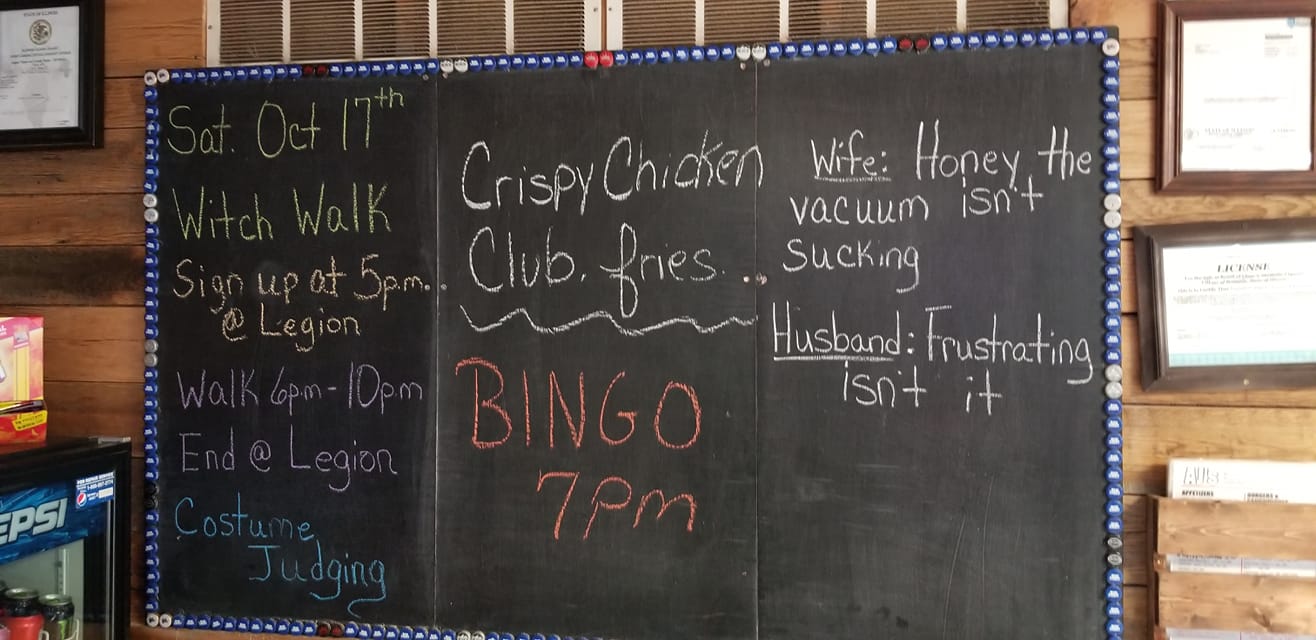 STATE OF ILLINOIS
Sat. Oct 17th
Witch Walk
Sign up at 5pm.
@ Legion
Walk 6pm-10pm
End @ Legion
Costume
Judging
Crispy Chicken
Club. fries.
BINGO
7pm
Wife: Honey the
vacuum isn't
sucking
Husband: Frustrating
isn't it
LICENSE
EPSI
APPETIZERS